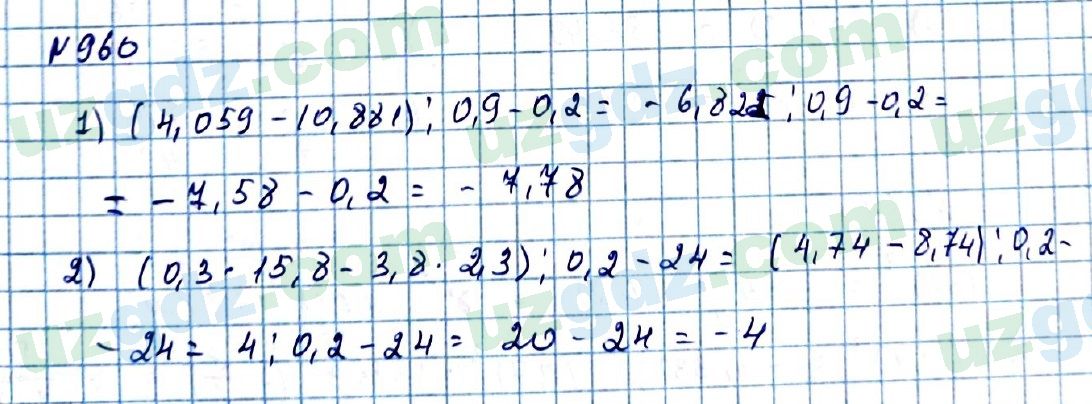 №960
1) (4,059 - 10,881) : 0,9 - 0,2 = - 6,822 : 0,9 - 0,2 =
= - 7,58 - 0,2 = - 7,78
2) (0,3 · 15,8 - 3,8 · 2,3) : 0,2 - 24 = (4,74 - 8,74) : 0,2 -
- 24 = 4 : 0,2 - 24 = 20 - 24 = - 4
uzgdz.com